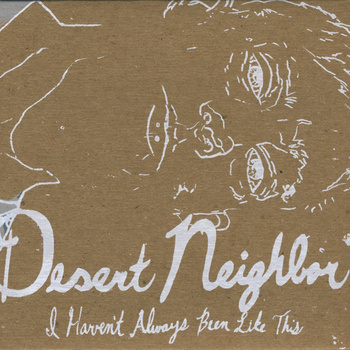 Desert Neighbor
I Haven't Always Been Like This